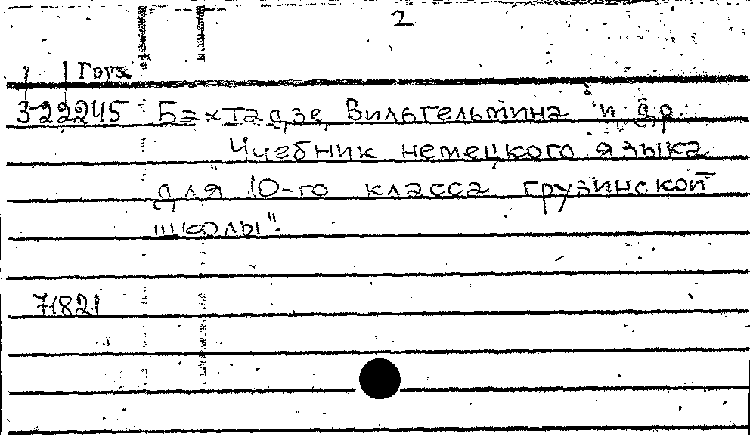 2
Груз
3-22245 Бахтадзе, Вильгельмина и др.
"Учебник немецкого языка
для 10-го класса грузинской
школы".
71821